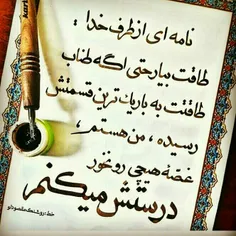 نامه ای از طرف خدا :
طاقت بیار حتی اگه طناب
طاقتت به باریک ترین قسمتش
رسیده ، من هستم ،
غصّه هیچی رو نخور
درستش میکنم